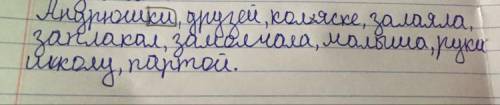 Андрюшки, друзей, коляске, залаяла,
заплакал, замолчала, малыша, руки
школу, партой.